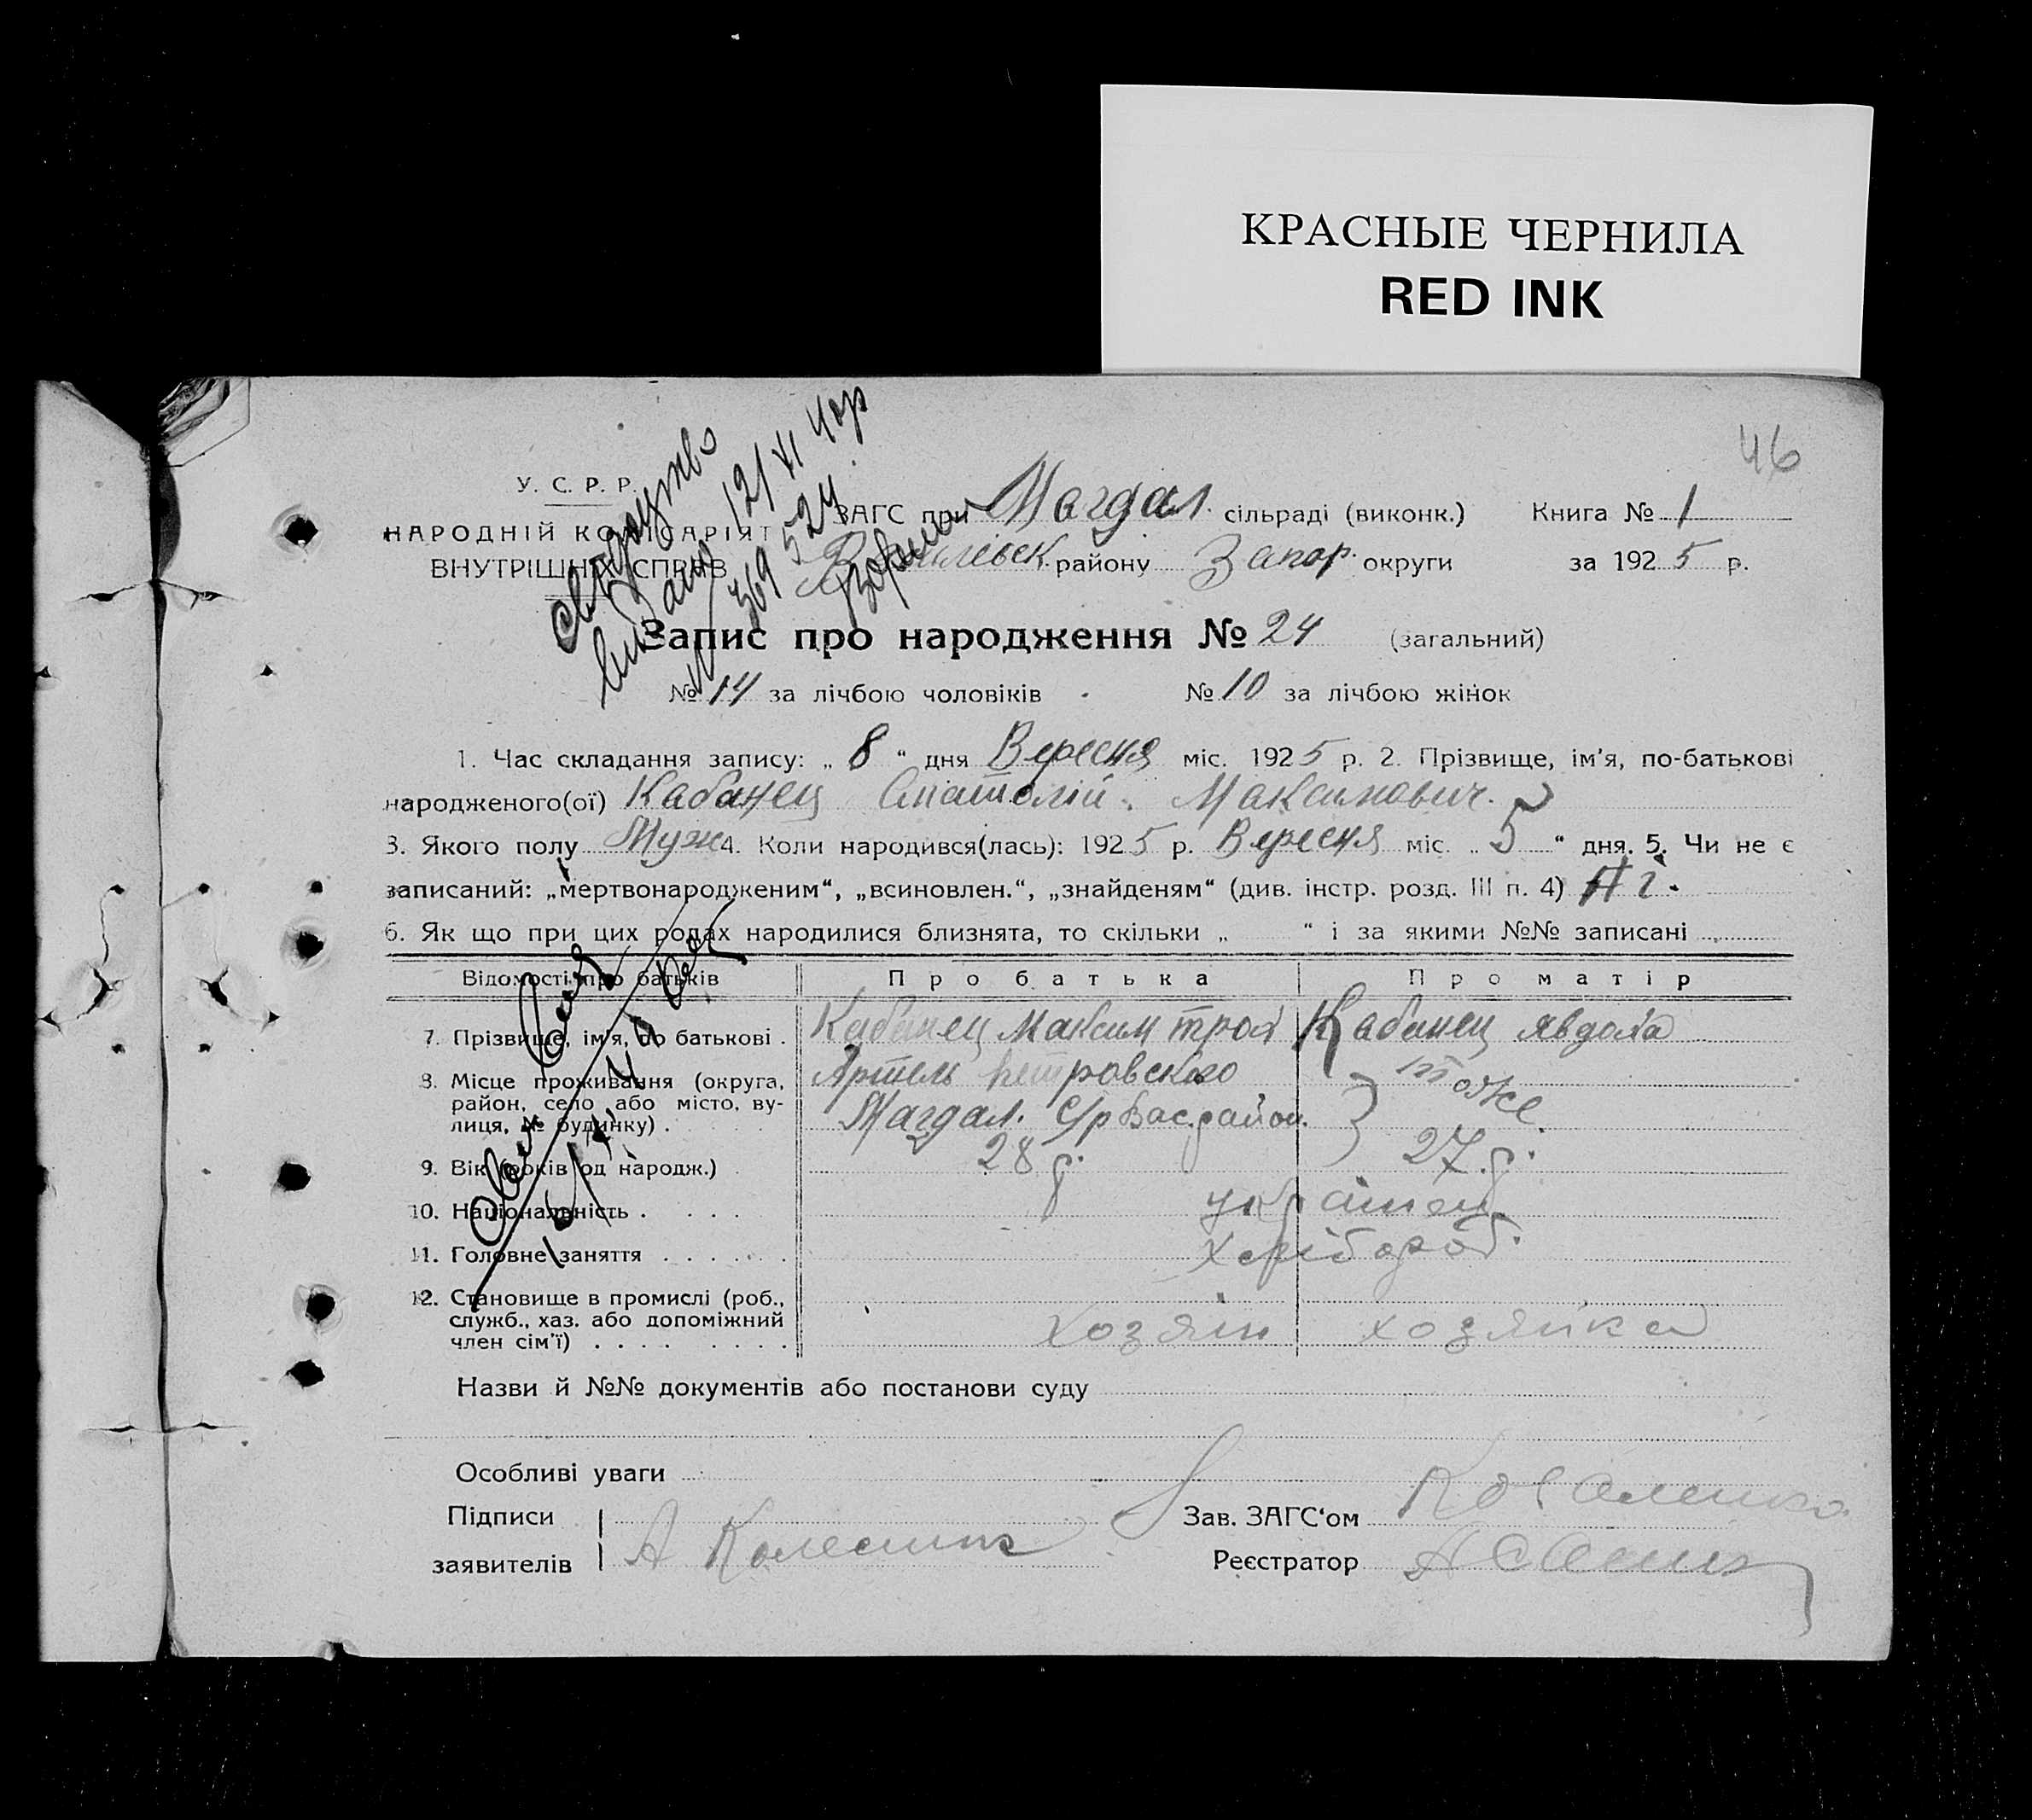 КРАСНЫЕ ЧЕРНИЛА
RED INK
46
У. С. Р. Р.
НАРОДНІЙ КОМІСАРІЯТ
ВНУТРІШНІХ СПРАВ
свидоцтво
видано 12/XI 40р
№ 369524
ЗАГС при Магдал. сільраді (виконк.) Книга № 1
Василівськ району Запор. округи за 1925 р.
Запис про народження № 24 (загальний)
№ 14 за лічбою чоловіків № 10 за лічбою жінок
1. Час складання запису: „ 8 “ дня Вересня міс. 1925 р. 2. Прізвище, ім'я, по-батькові
народженого(ої) Кабанец Анатолій. Максимович.
3. Якого полу Муж 4. Коли народився(лась): 1925 р. Вересня міс. „ 5 “ дня. 5. Чи не є
записаний: „мертвонародженим“, „всиновлен.“, „знайденям“ (див. інстр. розд. III п. 4) Ні.
6. Як що при цих родах народилися близнята, то скільки „ “ і за якими №№ записані
Відомості про батьків Про батька Про матір
7. Прізвище, ім'я, по батькові . Кабанец Максим Кабанец Явдоха
8. Місце проживання (округа, Артель Петровского тоже
район, село або місто, ву-
лиця, № будинку) . Магдал. С/р Вас. район.
9. Вік (років од народж.) 28 р. 27 р.
10. Національність . . . . україн.
11. Головне заняття . . . . . . хлібороб.
12. Становище в промислі (роб.,
служб., хаз. або допоміжний
член сім'ї) . . . . . . . . хозяін хозяйка
Назви й №№ документів або постанови суду
Особливі уваги
Підписи Зав. ЗАГС'ом Коваленко
заявителів А Колесник Реєстратор